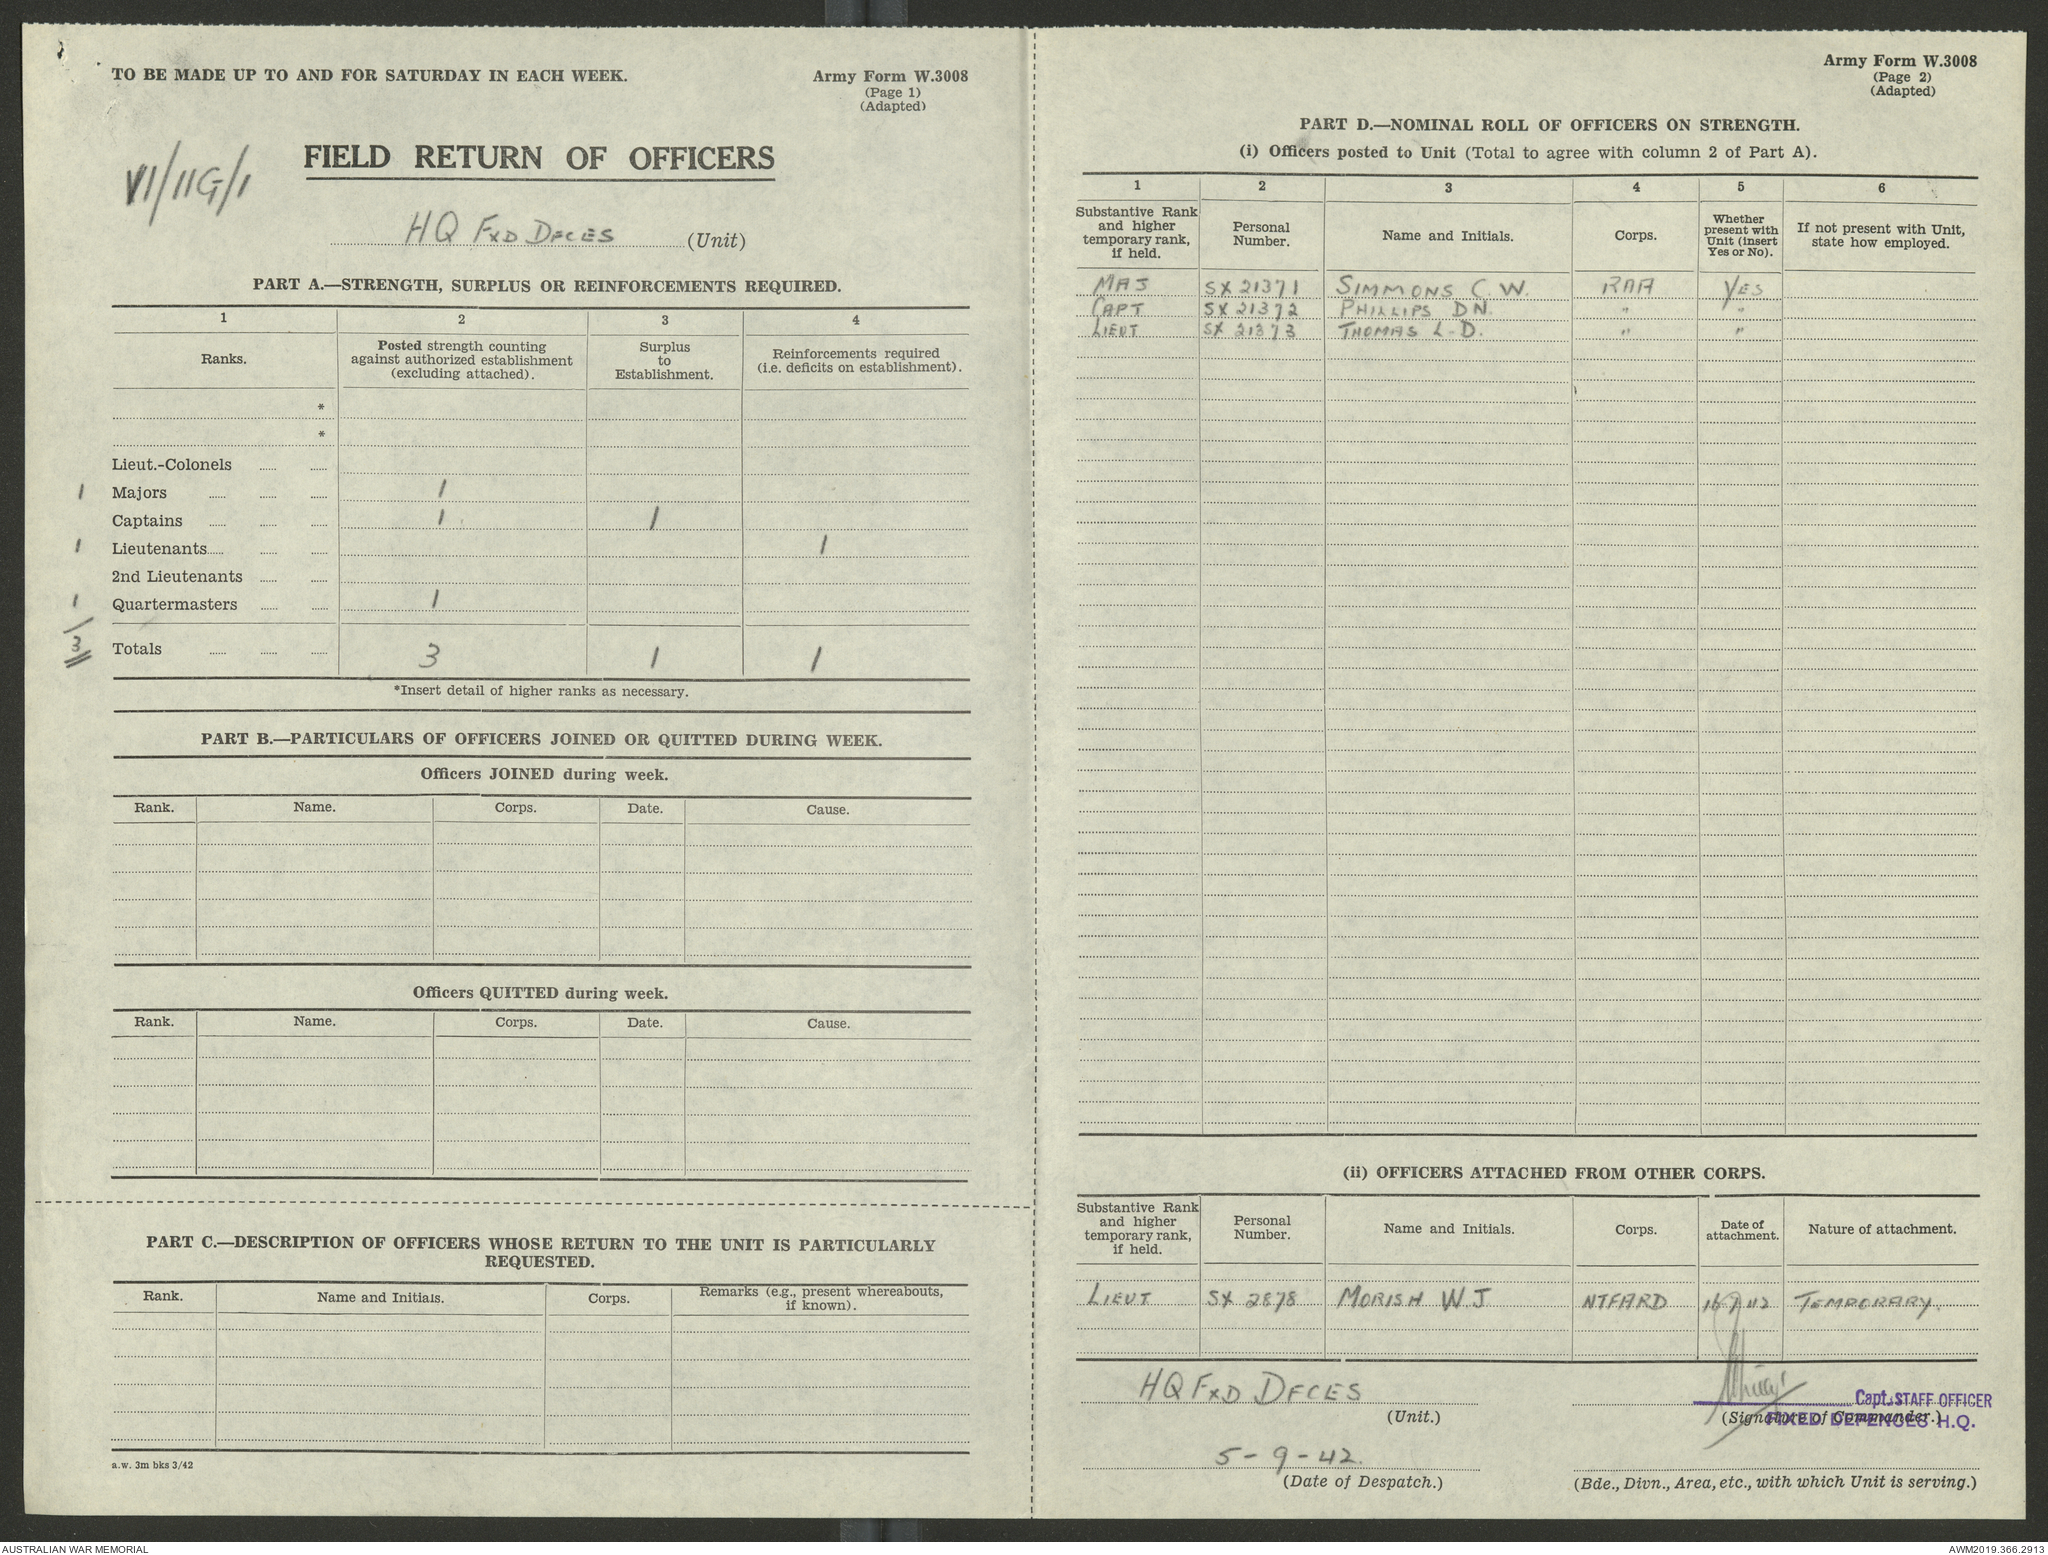 TO BE MADE UP TO AND FOR SATURDAY IN EACH WEEK.
Army Form W.3008
(Page 1)
(Adapted)
VI/11G/1
FIELD RETURN OF OFFICERS
HQ FXD DFCES (Unit)
PART A.—STRENGTH, SURPLUS OR REINFORCEMENTS REQUIRED.
1 2 3 4
Ranks. Posted strength counting against authorized establishment (excluding attached). Surplus to Establishment. Reinforcements required (i.e. deficits on establishment).
*
*
Lieut.-Colonels
1 Majors 1
Captains 1 1
1 Lieutenants 1
2nd Lieutenants
1 Quartermasters 1
3 Totals 3 1 1
*Insert detail of higher ranks as necessary.
PART B.—PARTICULARS OF OFFICERS JOINED OR QUITTED DURING WEEK.
Officers JOINED during week.
Rank. Name. Corps. Date. Cause.
Officers QUITTED during week.
Rank. Name. Corps. Date. Cause.
PART C.—DESCRIPTION OF OFFICERS WHOSE RETURN TO THE UNIT IS PARTICULARLY
REQUESTED.
Rank. Name and Initials. Corps. Remarks (e.g., present whereabouts, if known).
a.w. 3m bks 3/42
Army Form W.3008
(Page 2)
(Adapted)
PART D.—NOMINAL ROLL OF OFFICERS ON STRENGTH.
(i) Officers posted to Unit (Total to agree with column 2 of Part A).
1 2 3 4 5 6
Substantive Rank and higher temporary rank, if held. Personal Number. Name and Initials. Corps. Whether present with Unit (insert Yes or No). If not present with Unit, state how employed.
MAJ SX 21371 SIMMONS C.W. RAA YES
CAPT SX 21372 PHILLIPS DN. " "
LIEUT SX 21373 THOMAS L.D. " "
(ii) OFFICERS ATTACHED FROM OTHER CORPS.
Substantive Rank and higher temporary rank, if held. Personal Number. Name and Initials. Corps. Date of attachment. Nature of attachment.
LIEUT SX 2878 MORISH W J NTFARD 16 7 42 TEMPORARY.
HQ FXD DFCES
(Unit.)
Capt. STAFF OFFICER
(Signature of Commander.)
FIXED DEFENCES H.Q.
5-9-42.
(Date of Despatch.)
(Bde., Divn., Area, etc., with which Unit is serving.)
AUSTRALIAN WAR MEMORIAL
AWM2019.366.2913